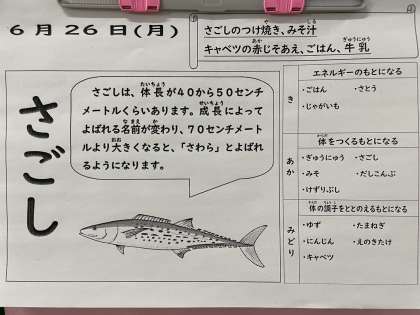 6月26日(月)
さごしのつけ焼き、みそ汁
キャベツの赤じそあえ、ごはん、牛乳
さごし
さごしは、体長が40から50センチ
メートルくらいあります。成長によって
よばれる名前が変わり、70センチメート
ルより大きくなると、「さわら」とよばれ
るようになります。
き
エネルギーのもとになる
・ごはん ・さとう
・じゃがいも
あか
体をつくるもとになる
・ぎゅうにゅう ・さごし
・みそ ・だしこんぶ
・けずりぶし
みどり
体の調子をととのえるもとになる
・ゆず ・たまねぎ
・にんじん ・えのきたけ
・キャベツ